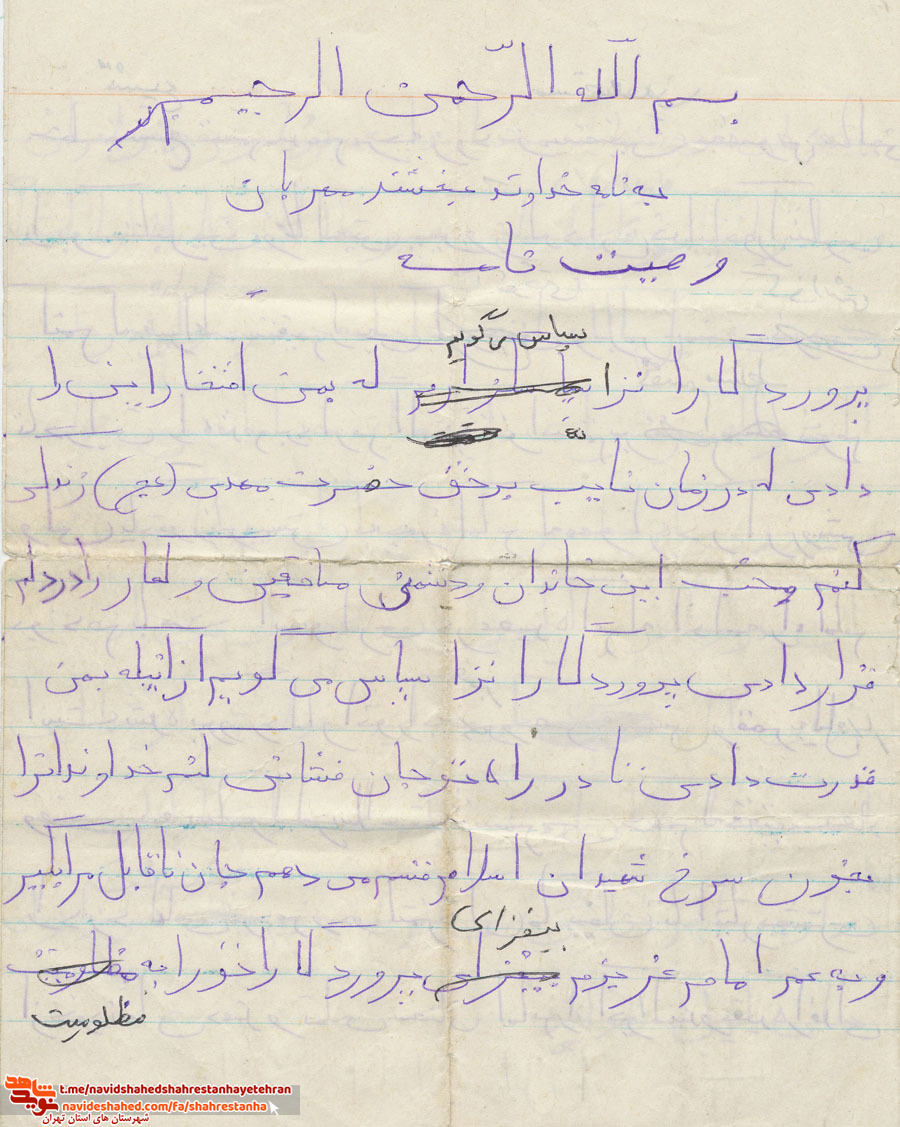 بسم اللّه الرّحمن الرحیم
به نام خداوند بخشند مهربان
وصیت نامه
سپاس می گویم
پروردگارا تزا که بمن افتخار این را
به
دادی که در زمان نایب برحق حضرت مهدی (عج) زندگی
کنم و حب این خاندان و دشمنی منافقین و کفار را در دلم
قرار دادی پروردگارا تزا سپاس می گویم از اینکه بمن
قدرت دادی تا در راه تو جان فشانی کنم خداوندا ترا
بخون سرخ شهیدان اسلام قسم می دهم جان ناقابل مرا بگیر
بیفزای
و به عمر امام عزیزم پروردگارا خو را به
مظلومیت
t.me/navidshahedshahrestanhayetehran
navideshahed.com/fa/shahrestanha
نوید شاهد
شهرستان های استان تهران